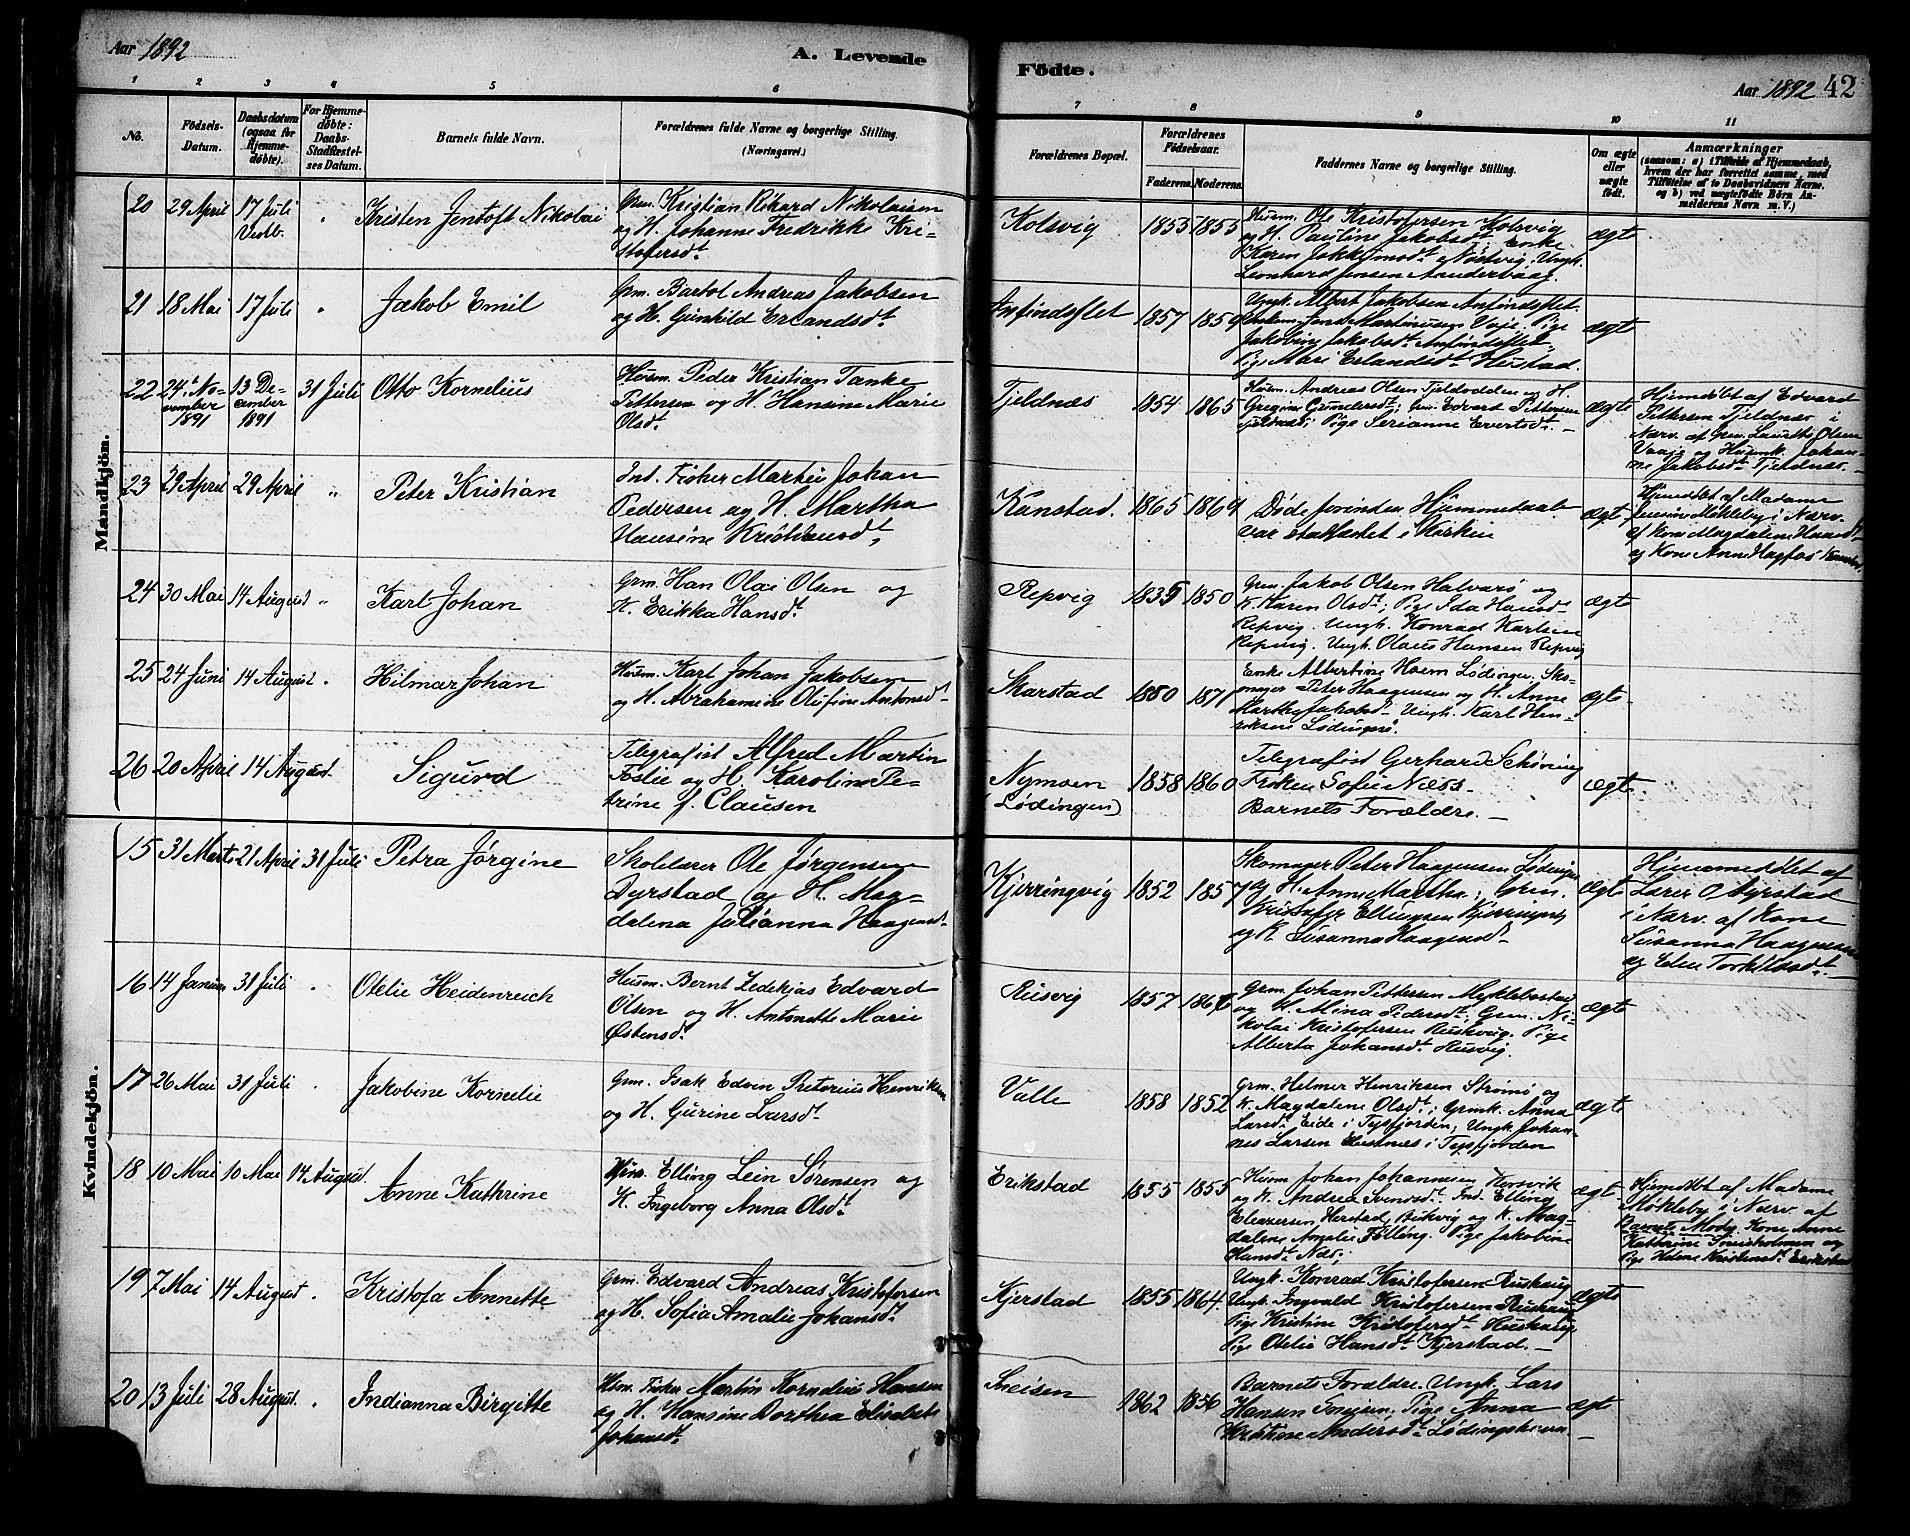 Aar 1892
A. Levende
Födte.
Aar 1892 42
1 2 3 4 5 6 7 8 9 10 11
No.
Födsels-Datum.
Daabsdatum (ogsaa for Hjemme-döbte).
For Hjemme-döbte: Daabs-Stadfæstel-ses Datum.
Barnets fulde Navn.
Forældrenes fulde Navne og borgerlige Stilling.
(Næringsvei.)
Forældrenes Bopæl.
Forældrenes Födselsaar.
Faderens. Moderens.
Faddernes Navne og borgerlige Stilling.
Om ægte eller uægte födt.
Anmærkninger
(saasom: a) i Tilfælde af Hjemmedaab,
hvem der har forrettet samme, med
Tilföielse af to Daabsvidners Navne,
og b) ved uægtefödte Börn An-
melderens Navn m. V.)
Mandkjön.
20 29 April 17 Juli Vedb. " Kristen Jentoft Nikolai
Grm. Kristian Rikard Nikolaisen
og H. Johanne Fredrikke Kri-
stofersdt
Kolsvig 1853 1855
Husm. Ole Kristofersen Kolsvig
og H. Pauline Jakobsdt Enke
Karen Jakobsdt Nöstvig. Ungk.
Leonhard Jensen
ægte
21 18 Mai 17 Juli " Jakob Emil
Grm. Bartol Andreas Jakobsen
og H. Gunhild Erlandsdt
Anfindslet 1857 1859
Ungk. Albert Jakobsen Anfindslet.
Pige
Jakobine Jakobsdt Anfindslet
Pige Mari Erlandsdt Herstad.
ægte
22 24 No-vember 1891 13 De-cember 1891 31 Juli Otto Kornelius
Husm. Peder Kristian Tanke
Pettersen og H. Hansine Marie
Olsdt
Tjeldnæs 1854 1865
Husm. Andreas Olsen Tjeldodden og H.
Gregine Gundersdt; Grm. Edvard Pettersen
Tjeldnæs; Pige Serianne Evertsdt. —
ægte
Hjemdöbt af Edvard
Pettersen Tjeldnæs i
Nærv. af Grm. Laurits Olsen
Vaaje og Husmk. Johan-
ne Jakobsdt Tjeldnæs. —
23 29 April 29 April " Peter Kristian
Ind. Fisker Martin Johan
Pedersen og H. Martha
Hansine Kristiansdt,
Kanstad. 1865 1869
Döde forinden Hjemmedaab
var stadfæstet i Kirken
ægte
Hjemdöbt af Madame
Mökleby i Nærv.
af Kone Magdalene
og Kone Anne Hagfos
24 30 Mai 14 August " Karl Johan
Grm. Han Olai Olsen og
H. Erikka Hansdt.
Repvig 1835 1850
Grm. Jakob Olsen Halvarö og
K. Karen Olsdt; Pige Ida Hansdt
Repvig. Ungk. Konrad Karlsen
Repvig. Ungk. Olaus Hansen Repvig
ægte
25 24 Juni 14 August " Hilmar Johan
Husm. Karl Johan Jakobsen
og H. Abrahamine Olufine Antonsdt
Skarstad 1880 1871
Enke Albertine Holm Lödingen. Sko-
mager Peter Haagensen og H. Anne
Martha Jakobsdt Ungk. Karl Hen-
riksen Lödingen.
ægte
26 20 April 14 August. Sigurd
Telegrafist Alfred Martin
Foslie og H. Karoline Pe-
trine f. Clausen
(Lödingen) 1858 1860
Telegrafist Gerhard Schöning
Fröken Sofie Næss.
Barnets Forældre. —
ægte
Kvindekjön.
15 31 Marts 21 April 31 Juli Petra Jørgine
Skolelærer Ole Jørgensen
Dyrstad og H. Mag-
dalena Julianna Haagensdt
Kjerringvig 1852 1857
Skomager Peter Haagensen Lödingen
og H. Anne Martha; Grm.
Kristofer Ellingsen Kjerringvig
og K. Susanna Haagensdt
ægte
Hjemmedöbt af
Lærer O Dyrstad
i Nærv. af Kone
Susanna Haagensen
og Elen Torkildsdt.
16 14 Januar 31 Juli " Otelie Heidenreich
Husm. Bernt Zedekias Edvard
Olsen og H. Antonette Marie
Østensdt
Rusvig 1857 1867
Grm. Johan Pettersen Myklebostad
og H. Mina Pedersdt; Grm. Ni-
kolai Kristofersen Ruskvig. Pige
Alberta Johansdt Husvig.
ægte
17 26 Mai 31 Juli " Jakobine Kornelie
Grm. Isak Edvin Pretorius Henriksen
og H. Gurine Larsdt
Valle 1858 1852
Grm. Helmer Henriksen Strömö og
K. Magdalene Olsdt; Grmk. Anna
Larsdt Eide i Tysfjorden; Ungk Johan-
nes Larsen i Tysfjorden
ægte
18 10 Mai 10 Mai 14 August Anne Kathrine
Husm. Elling Lein Sørensen og
K. Ingeborg Anna Olsdt
Erikstad 1855 1855
Husm Johan Johannesen Korsvik
og K. Andrea Svendsdt. Ind. Elling
Eleazersen Herstad, Bukvig og K. Mag-
dalene Amalie Elling. Pige Jakobine
Hansdt Næs;
ægte
Hjemdöbt af Madame
Mökleby i Nærv. af
Barnets Moder, Kone Anne
Kathrine og
Pige Helene Kristensdt Erikstad
19 7 Mai 14 August " Kristofa Annette
Grm. Edvard Andreas Kristofersen
og H. Sofia Amalie Johansdt
Kjerstad 1855 1864.
Ungk. Konrad Kristofersen Ruskaug
Ungk. Ingvald Kristofersen Ruskaug
Pige Kristine Kristofersdt Huskaug
Pige Otelie Hansdt Kjerstad. —
ægte
20 13 Juli 28 August. " Indianna Birgitte
Husm. Fisker Martin Kornelius Hansen
og H. Hansine Dorthea Elisabeth
Johansdt
Sneisen 1862 1856
Barnets Forældre. Ungk. Lars
Hansen Pige Anna
Kristine Andersdt Lödingshavn
ægte